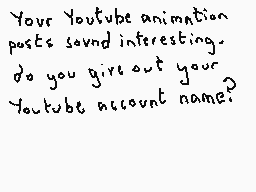 Your Youtube animation
posts sound interesting.
do you give out your
Youtube account name?